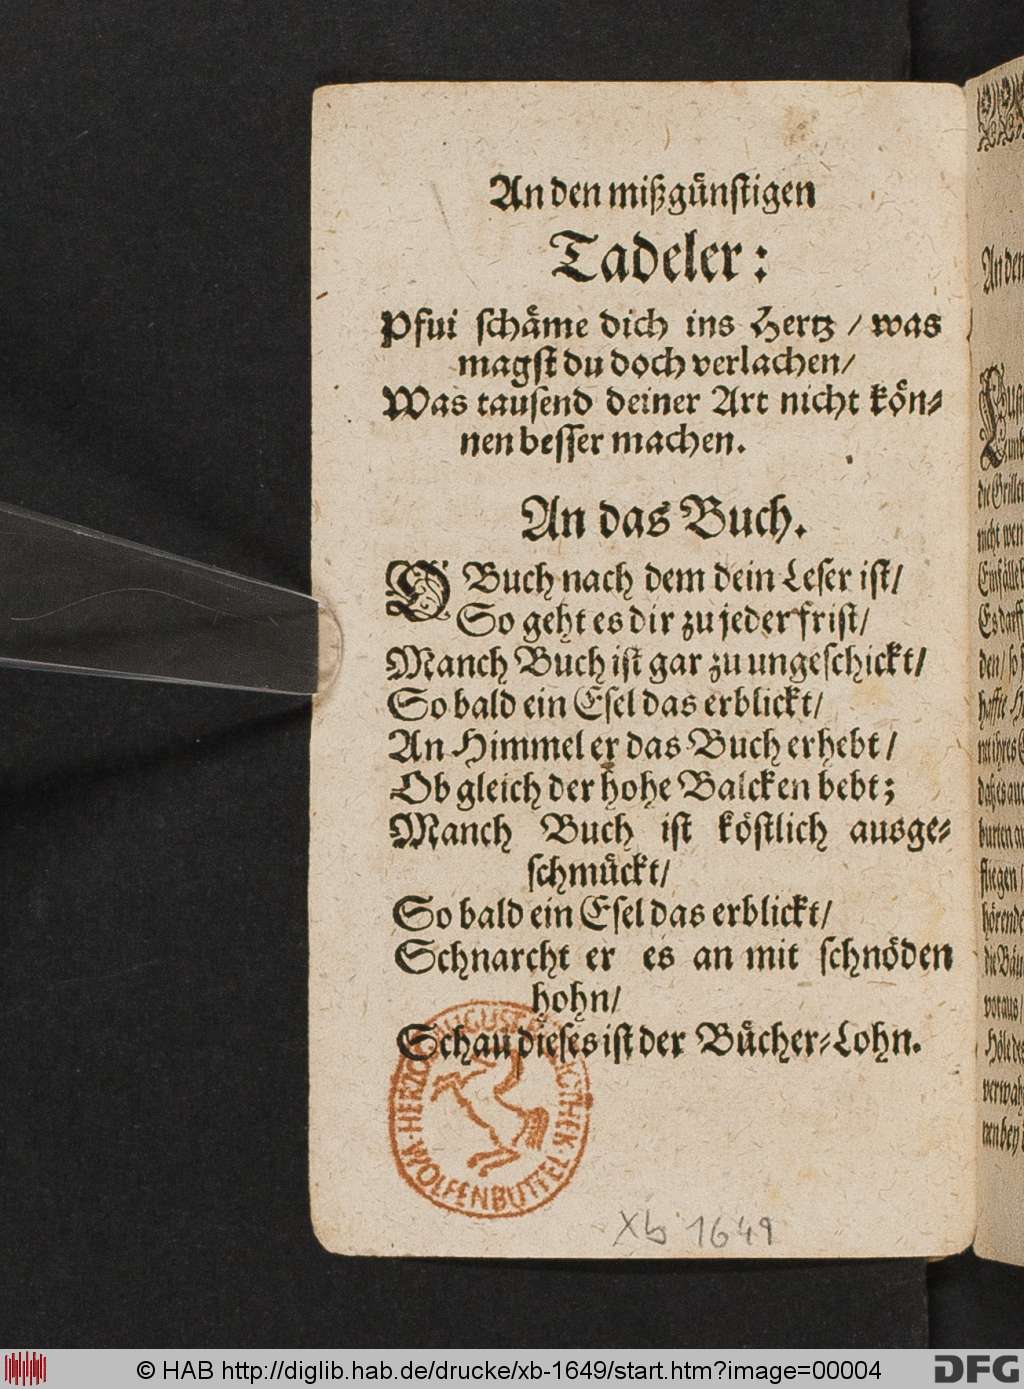 An den mißgünstigen
Tadeler:
Pfui schäme dich ins Hertz / was
magst du doch verlachen /
Was tausend deiner Art nicht kön-
nen besser machen.
An das Buch.
O Buch nach dem dein Leser ist /
So geht es dir zu jeder frist /
Manch Buch ist gar zu ungeschickt /
So bald ein Esel das erblickt /
An Himmel er das Buch erhebt /
Ob gleich der hohe Balcken bebt;
Manch Buch ist köstlich ausge-
schmückt /
So bald ein Esel das erblickt /
Schnarcht er es an mit schnöden
hohn /
Schau dieses ist der Bücher-Lohn.
WOLFENBÜTTEL
Xb 1649
An den
die Grillen
nicht wen
den / so
© HAB http://diglib.hab.de/drucke/xb-1649/start.htm?image=00004
DFG